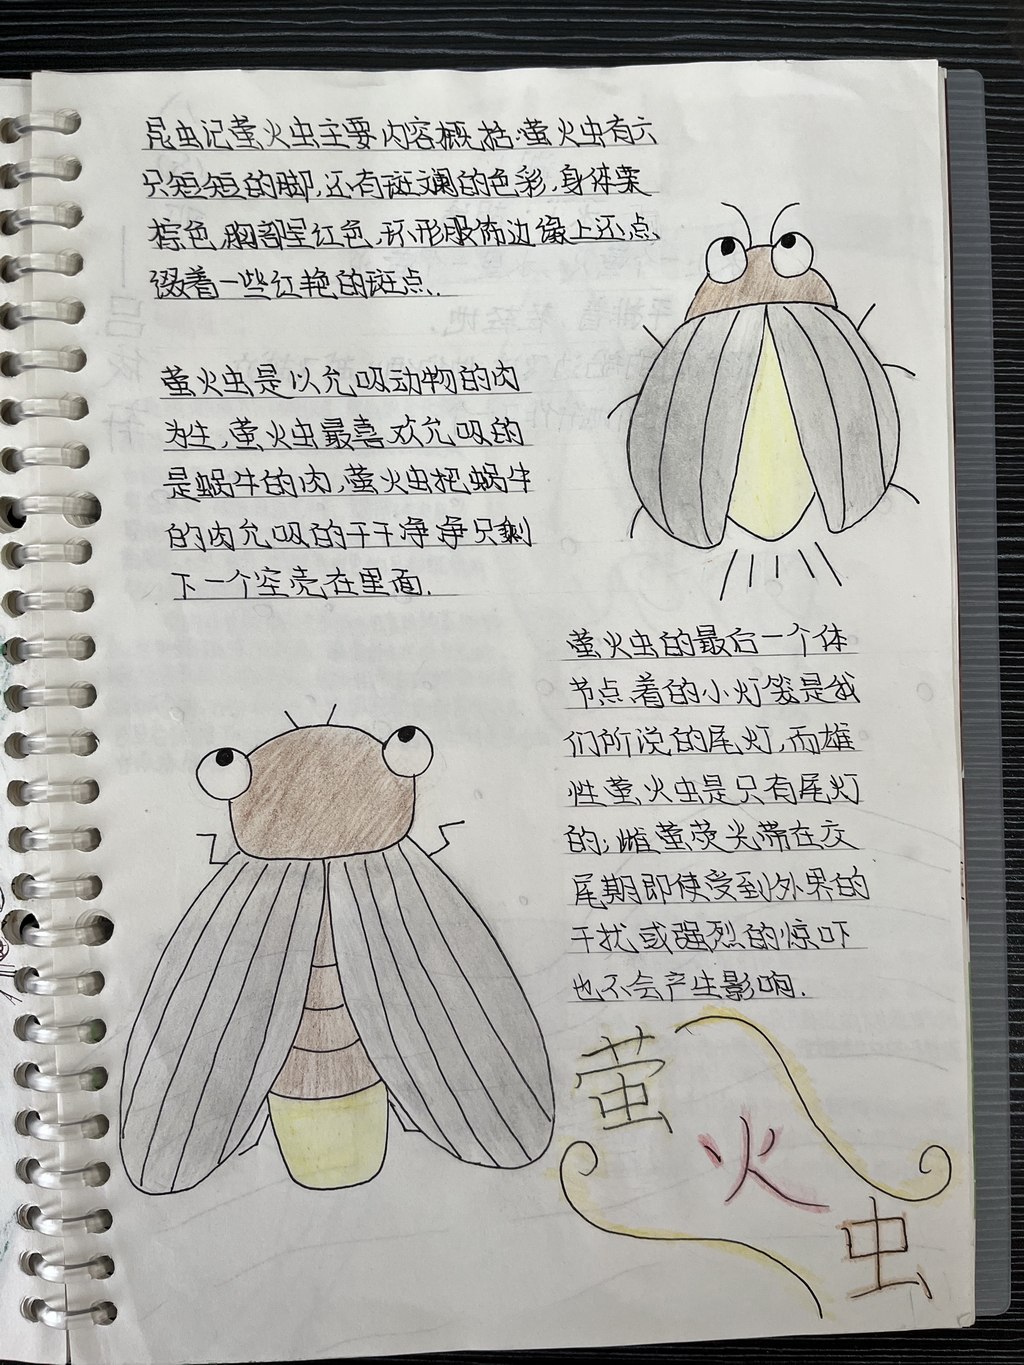 昆虫记萤火虫主要内容概括:萤火虫有六
只短短的脚,还有斑斓的色彩,身体栗
棕色,胸部呈红色,环形服饰边缘上还点
缀着一些红艳的斑点.
萤火虫是以允吸动物的肉
为生,萤火虫最喜欢允吸的
是蜗牛的肉,萤火虫把蜗牛
的肉允吸的干干净净只剩
下一个空壳在里面.
萤火虫的最后一个体
节点着的小灯笼是我
们所说的尾灯,而雄
性萤火虫是只有尾灯
的;雌萤荧光带在交
尾期即使受到外界的
干扰或强烈的惊吓
也不会产生影响.
萤
火
虫